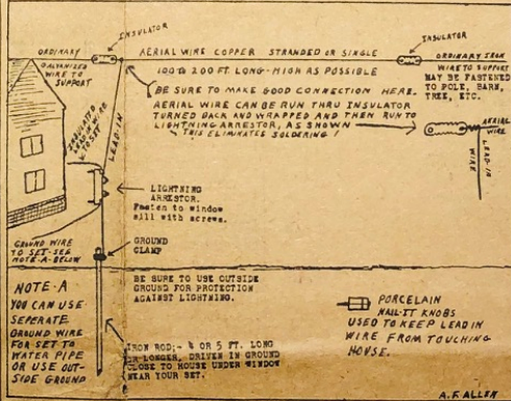 INSULATOR
ORDINARY
GALVANIZED
WIRE TO
SUPPORT
AERIAL WIRE COPPER STRANDED OR SINGLE
100 to 200 FT. LONG-HIGH AS POSSIBLE
INSULATOR
ORDINARY IRON
WIRE TO SUPPORT
MAY BE FASTENED
TO POLE, BARN,
TREE, ETC.
BE SURE TO MAKE GOOD CONNECTION HERE.
AERIAL WIRE CAN BE RUN THRU INSULATOR
TURNED BACK AND WRAPPED AND THEN RUN TO
LIGHTNING ARRESTOR, AS SHOWN
THIS ELIMINATES SOLDERING!
AERIAL
WIRE
LEAD-IN
WIRE
INSULATED
LEAD IN WIRE
TO SET
LEAD-IN
LIGHTNING
ARRESTOR.
Fasten to window
sill with screws.
GROUND WIRE
TO SET-SEE
NOTE-A-BELOW
GROUND
CLAMP
BE SURE TO USE OUTSIDE
GROUND FOR PROTECTION
AGAINST LIGHTNING.
NOTE-A
YOU CAN USE
SEPERATE
GROUND WIRE
FOR SET TO
WATER PIPE
OR USE OUT-
SIDE GROUND
IRON ROD;- 4 OR 5 FT. LONG
OR LONGER, DRIVEN IN GROUND
CLOSE TO HOUSE UNDER WINDOW
NEAR YOUR SET.
PORCELAIN
NAIL-IT KNOBS
USED TO KEEP LEAD IN
WIRE FROM TOUCHING
HOUSE.
A.F. ALLEN